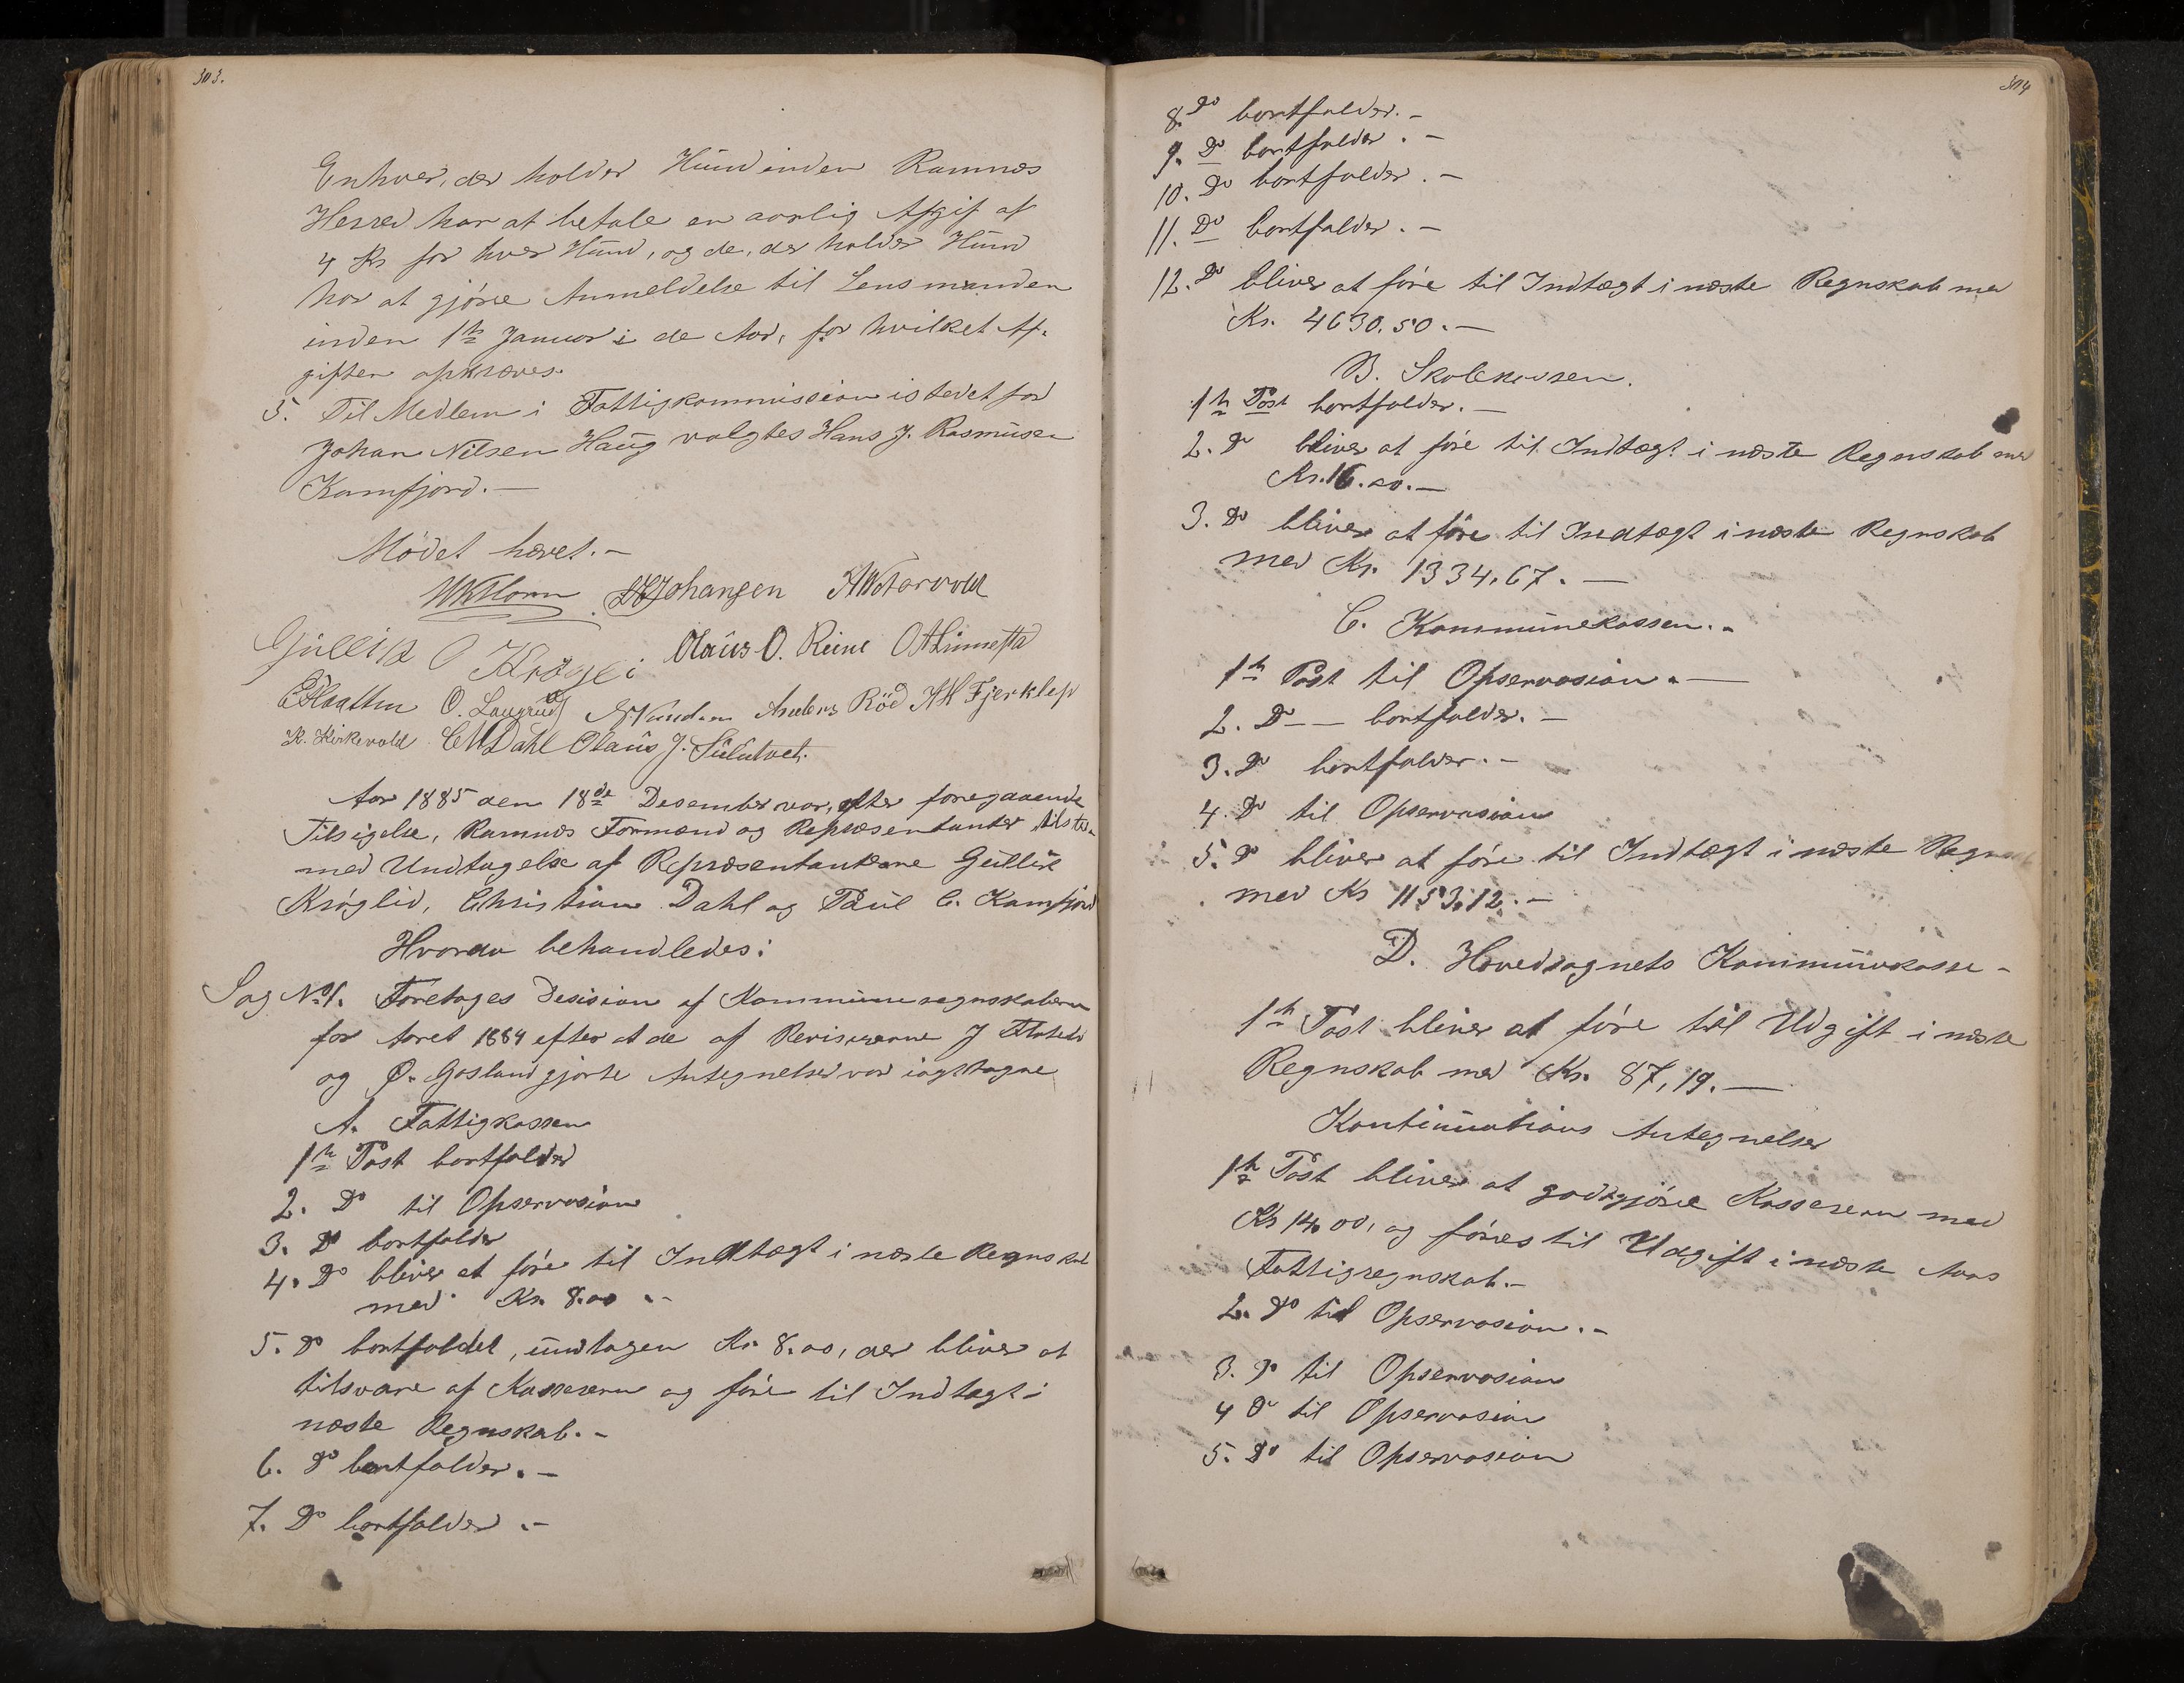 303.
Enhver, der holder Hund inden Ramnæs
Herred har at betale en aarlig Afgif af
4 Kr for hver Hund, og de, der holder Hund
har at gjöre Anmeldelse til Lensmanden
inden 1ste Januar i de Aar, for hvilket Af-
giften opkræves.
5. Til Medlem i Fattigkommission istedet for
Johan Nilsen Haug valgtes Hans J. Rasmusen
Kamfjord.—
Mödet hævet.—
Johansen
Gullik O Krögli Olaus O. Reine
O. Anders Röd A H Fjerklep
K. Kirkevold C M Dahl Olaus J.
Aar 1885 den 18de Desember var, efter foregaaende
Tilsigelse, Ramnæs Formænd og Repræsentanter tilste-
med Undtagelse af Repræsentanterne Gullik
Kröglid, Christian Dahl og Paul C. Kamfjord
Hvorda behandledes:
Sag No 1. Foretages Desision af Kommuneregnskaberne
for Aaret 1884 efter at de af Revisorerne J
og O. Gosland gjorte Antegnelser var iagttagne
A. Fattigkassen
1ste Post bortfalder
2. Do til Opservasion
3. Do bortfalder
4. Do bliver at före til Indtægt i næste Regnskab
med Kr. 8.00.—
5. Do bortfaldet, undtagen Kr. 8.00, der bliver at
tilsvare af Kassereren og före til Indtægt i
næste Regnskab.—
6. Do bortfalder.—
7. Do bortfalder.—
304
8. Do bortfalder.—
9. Do bortfalder.—
10. Do bortfalder.—
11. Do bortfalder.—
12. Do bliver at före til Indtægt i næste Regnskab med
Kr. 4630.50.—
B. Skolekassen.
1ste Post bortfalder.—
2. Do bliver at före til Indtægt i næste Regnskab med
Kr. 16.20.—
3. Do bliver at före til Indtægt i næste Regnskab
med Kr. 1334,67.—
C. Kommunekassen.—
1ste Post til Opservasion.—
2. Do — bortfalder.—
3. Do bortfalder.—
4. Do til Opservasion
5. Do bliver at före til Indtægt i næste Regnskab
med Kr 1153,12.—
D. Hovedsognets Kommunekasse—
1ste Post bliver at före til Udgift i næste
Regnskab med Kr. 87,19.—
Kontinuations Antegnelser
1ste Post bliver at godtgjöre Kassereren med
Kr 14,00, og föres til Udgift i næste Aars
Fattigregnskab.—
2. Do til Opservasion.—
3. Do til Opservasion
4 Do til Opservasion
5. Do til Opservasion